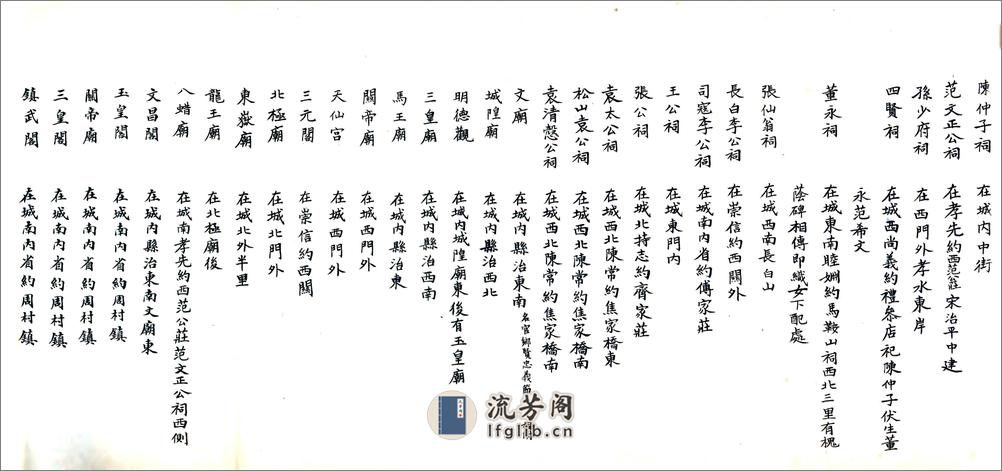 陳仲子祠　在城内中街
范文正公祠　在孝先約西范公莊宋治平中建
孫少府祠　在西門外孝水東岸
四賢祠　在城西尚義約禮叅店祀陳仲子伏生董
永范希文
董永祠　在城東南睦姻約馬鞍山祠西北三里有槐
蔭碑相傳即織女下配處
張仙翁祠　在城西南長白山
長白李公祠　在崇信約西關外
司寇李公祠　在城南内省約傅家莊
王公祠　在城東門内
張公祠　在城北持志約齊家莊
袁太公祠　在城西北陳常約焦家橋東
松山袁公祠　在城西北陳常約焦家橋南
袁清慤公祠　在城西北陳常約焦家橋南
文廟　在城内縣治東南名宦鄉賢忠義
城隍廟　在城内縣治西北
明德觀　在城内城隍廟東後有玉皇廟
三皇廟　在城内縣治西南
馬王廟　在城内縣治東
關帝廟　在城西門外
天仙宫　在城西門外
三元閣　在崇信約西關
北極廟　在城北門外
東嶽廟　在城北外半里
龍王廟　在北極廟後
八蜡廟　在城南孝先約西范公莊范文正公祠西側
文昌閣　在城内縣治東南文廟東
玉皇閣　在城南内省約周村鎮
關帝廟　在城南内省約周村鎮
三皇閣　在城南内省約周村鎮
鎮武閣　在城南内省約周村鎮
流芳阁
lfglib.cn